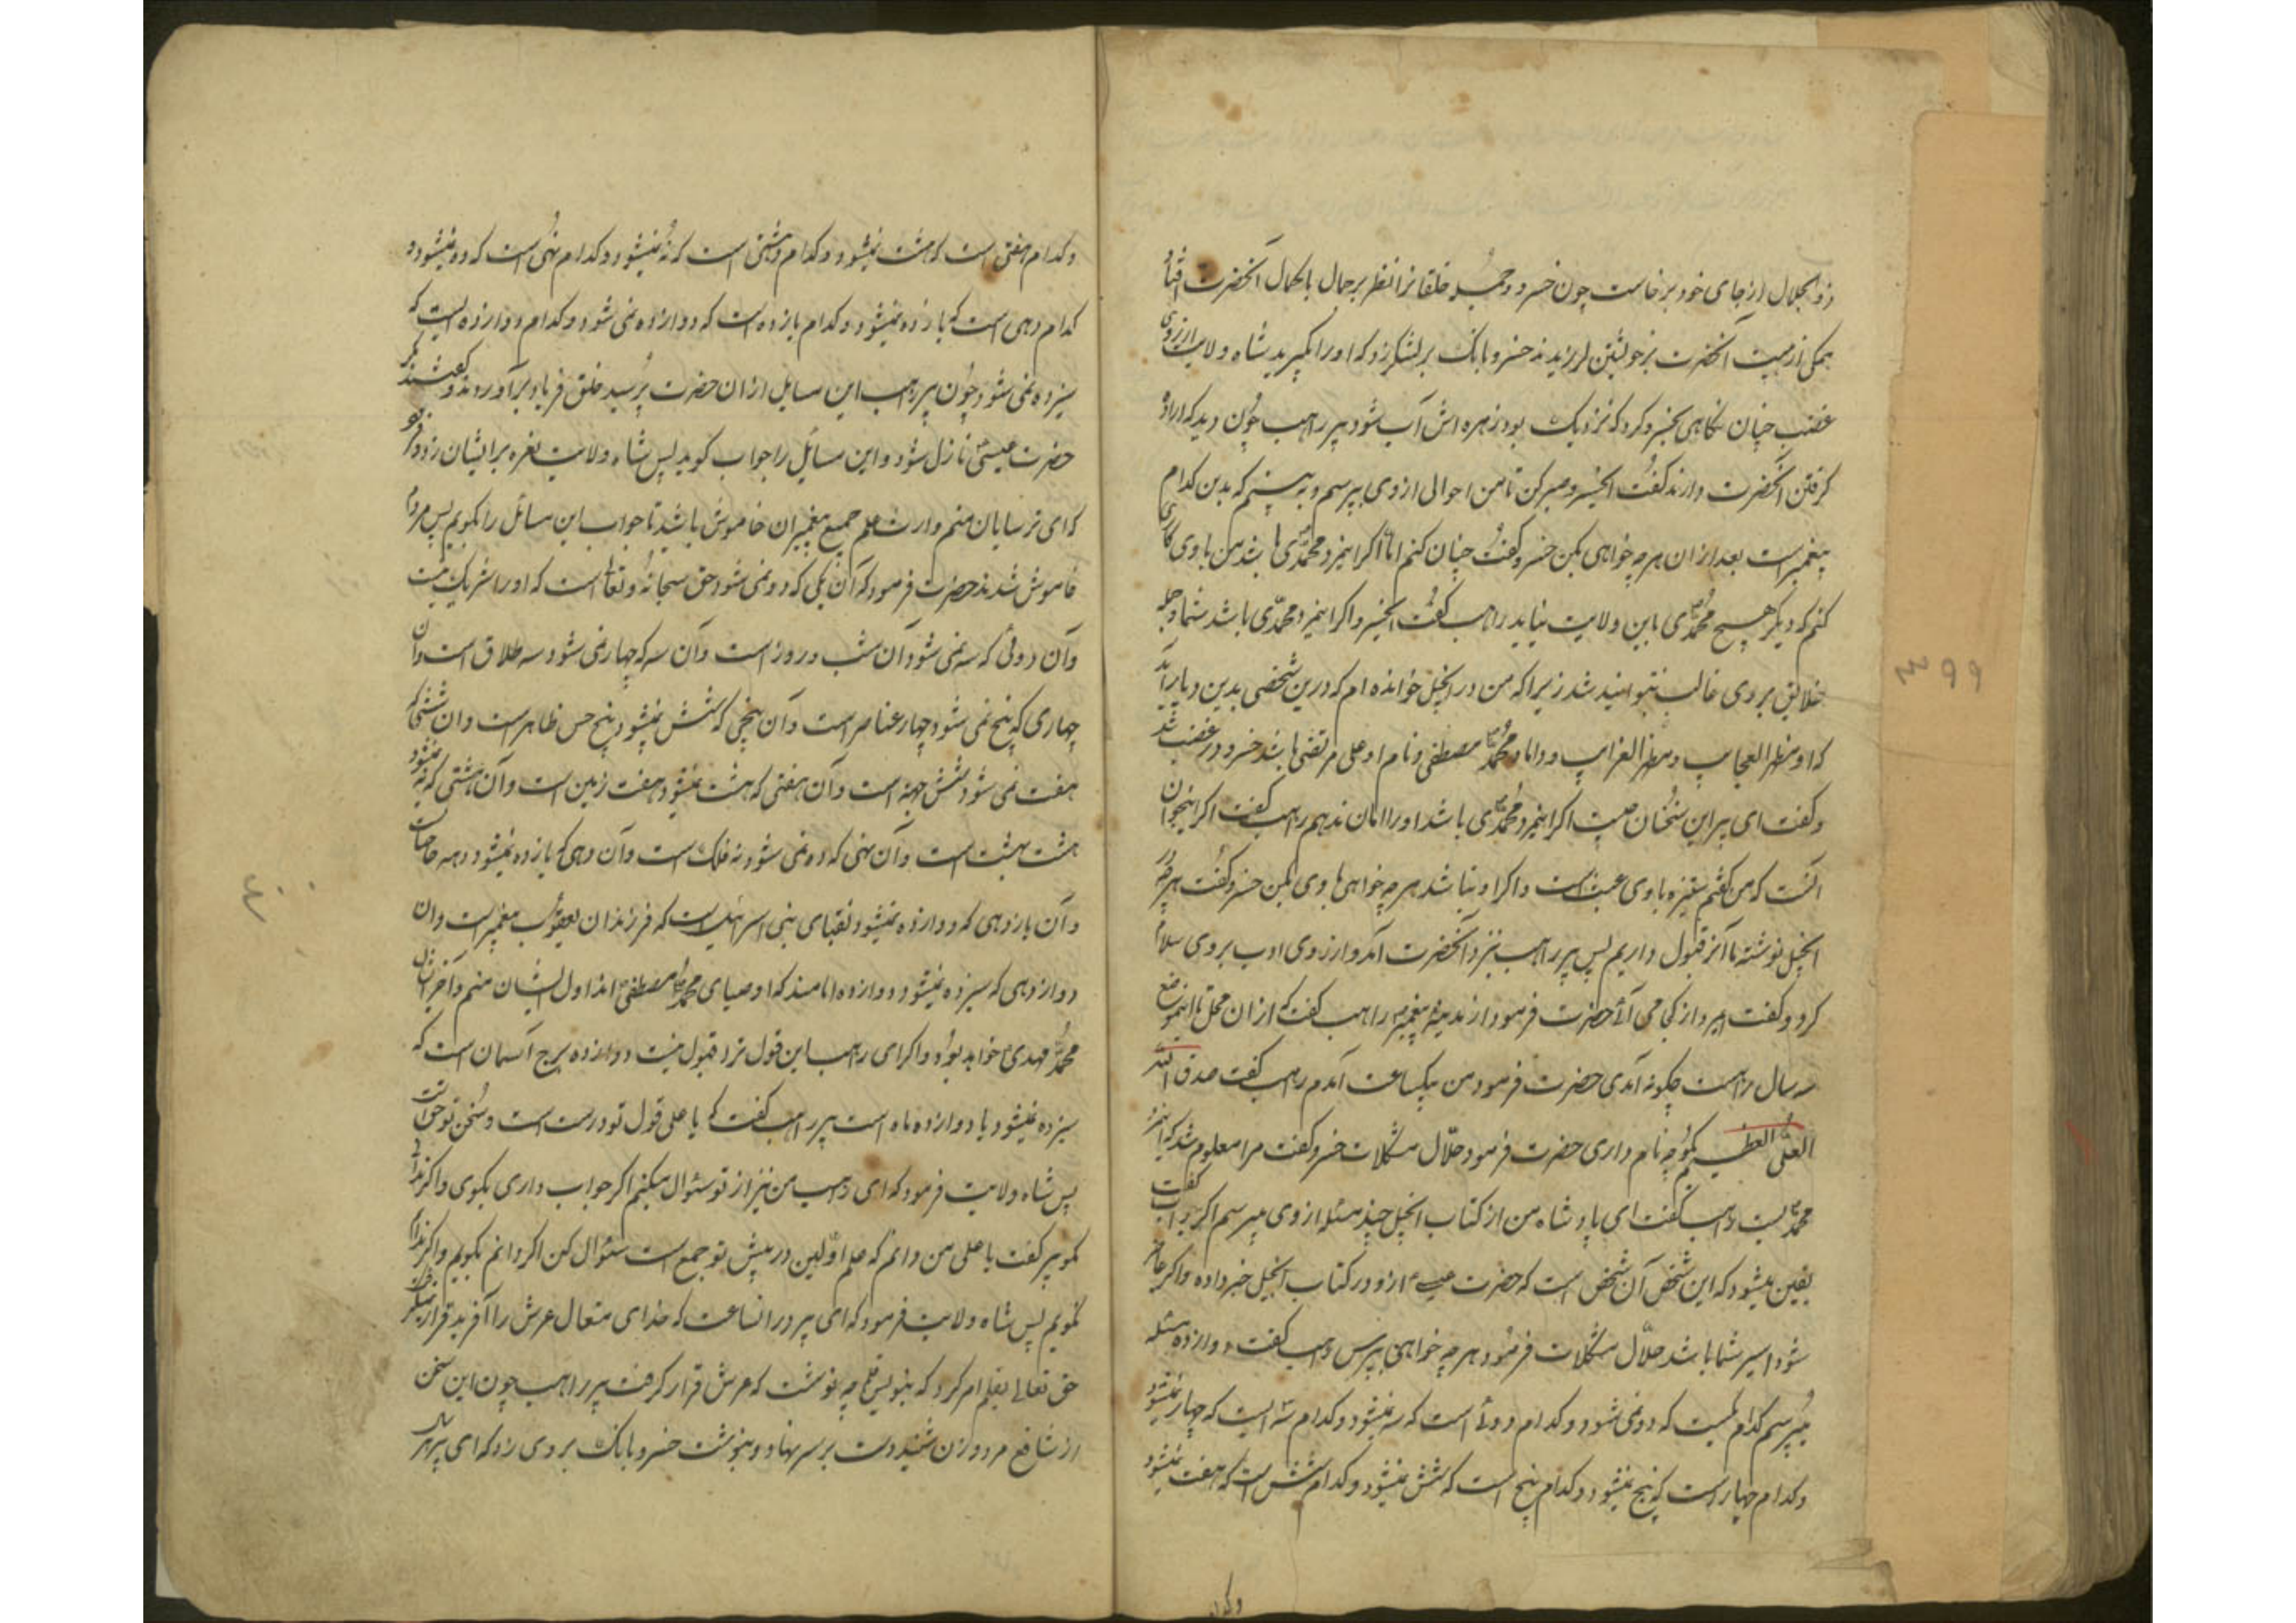 ذوالجلال از جای خود برخاست چون خسرو و جمیع خلقانرا نظر بر جمال با کمال آنحضرت افتاد
همکی از هیبت آنحضرت بر خویشتن لرزیدند خسرو بانک بر لشکر زد که او را بگیرید شاه ولایت از روی
غضب چنان نکاهی بخسرو کرد که نزدیک بود زهره اش آب شود پیر راهب چون دید که اراده
کرفتن آنحضرت دارند کفت ایخسرو صبر کن تا من احوالی از وی بپرسم و به بینم که بدین کدام
پیغمبر است بعد از آن هر چه خواهی بکن خسرو کفت چنان کنم اما اکر اینمرد محمدی باشد من با وی کاری
کنم که دیکر هیچ محمدی باین ولایت نیاید راهب کفت ایخسرو اکر اینمرد محمدی باشد شما و جمله
خلایق بر وی غالب نتوانید شد زیرا که من در انجیل خوانده ام که درین شخصی بدین دیار آید
که او مظهر العجایب و مظهر الغرایب و داماد محمد مصطفی و نام او علی مرتضی باشد خسرو در غضب شد
و کفت ای پیر این سخنان چیست اکر اینمرد محمدی باشد او را امان ندهم راهب کفت اکر اینجوان
آنست که من کفتم ستیزه با وی عبث است و اکر او نباشد هر چه خواهی با وی بکن خسرو کفت هر چه در
انجیل نوشته ما آنرا قبول داریم پس پیر راهب نزد آنحضرت آمد و از روی ادب بر وی سلام
کرد و کفت ایمرد از کجا می آئی حضرت فرمود از مدینه پیغمبر راهب کفت که از ان محل تا اینموضع
سه سال راهست چکونه آمدی حضرت فرمود من بیکساعت آمدم راهب کفت صدق الله
العلی العظیم بکو چه نام داری حضرت فرمود حلال مشکلات خسرو کفت مرا معلوم شد که اینمرد
محمدیست راهب کفت ای پادشاه من از کتاب انجیل چند مسئله از وی میپرسم اکر جواب کفت
یقین میشود که این شخص آن شخص است که حضرت عیسی ازو در کتاب انجیل خبر داده و اکر عاجز
شود اسیر شما باشد حلال مشکلات فرمود هر چه خواهی بپرس راهب کفت دوازده مسئله
میپرسم کدام یکیست که دو نمی شود و کدام دو است که سه نمیشود و کدام سه ایست که چهار نمیشود
و کدام چهار است که پنج نمیشود و کدام پنج است که شش نمیشود و کدام شش است که هفت نمیشود
و کدام
و کدام هفتی است که هشت نمیشود و کدام هشتی است که نه نمیشود و کدام نهی است که ده نمیشود و
کدام دهی است که یازده نمیشود و کدام یازده است که دوازده نمی شود و کدام دوازده ایست که
سیزده نمی شود چون پیر راهب این مسایل از ان حضرت پرسید خلق فریاد برآوردند و کفتند مکر
حضرت عیسی نازل شود و این مسایل را جواب کوید پس شاه ولایت نعره برایشان زد و فرمود
که ای ترسایان منم وارث علم جمیع پیغمبران خاموش باشید تا جواب این مسائل را بکویم پس مردم
خاموش شدند حضرت فرمود که آن یکی که دو نمی شود حق سبحانه و تعالی است که او را شریک نیست
و آن دوئی که سه نمی شود آن شب و روز است و آن سه که چهار نمی شود سه طلاق است و آن
چهاری که پنج نمی شود چهار عناصر است و آن پنجی که شش نمیشود پنج حس ظاهر است و ان ششی که
هفت نمی شود شش جهة است و آن هفتی که هشت نمیشود هفت زمین است و آن هشتی که نه نمیشود
هشت بهشت است و آن نهی که ده نمی شود نه فلک است و آن دهی که یازده نمیشود دهه حاجیان است
و آن یازدهی که دوازده نمیشود نقبای بنی اسرائیل است که فرزندان یعقوب پیغمبر است و ان
دوازدهی که سیزده نمیشود دوازده امامند که اوصیای محمد مصطفی اند اول ایشان منم و آخر ایشان
محمد مهدی خواهد بود و اکر ای راهب این قول نزد قبول نیست دوازده برج آسمان است که
سیزده نمیشود یا دوازده ماه است پیر راهب کفت که یا علی قول تو درست است و سخن تو حق است
پس شاه ولایت فرمود که ای راهب من نیز از تو سئوال میکنم اکر جواب داری بکوی و اکر نداری
بکو پیر کفت یا علی من دانم که علم اولین در پیش تو جمع است سئوال کن اکر دانم بکویم و اکر ندانم
نکویم پس شاه ولایت فرمود که ای پیر در انساعت که خدای متعال عرش را آفرید قرار نمیکرفت
حق تعالی بقلم امر کرد که بنویس قلم چه نوشت که عرش قرار کرفت پیر راهب چون این سخن
از شافع مرد و زن شنید دست بر سر نهاد و بنوشت خسرو بانک بر وی زد که ای پیر
۳۹۹